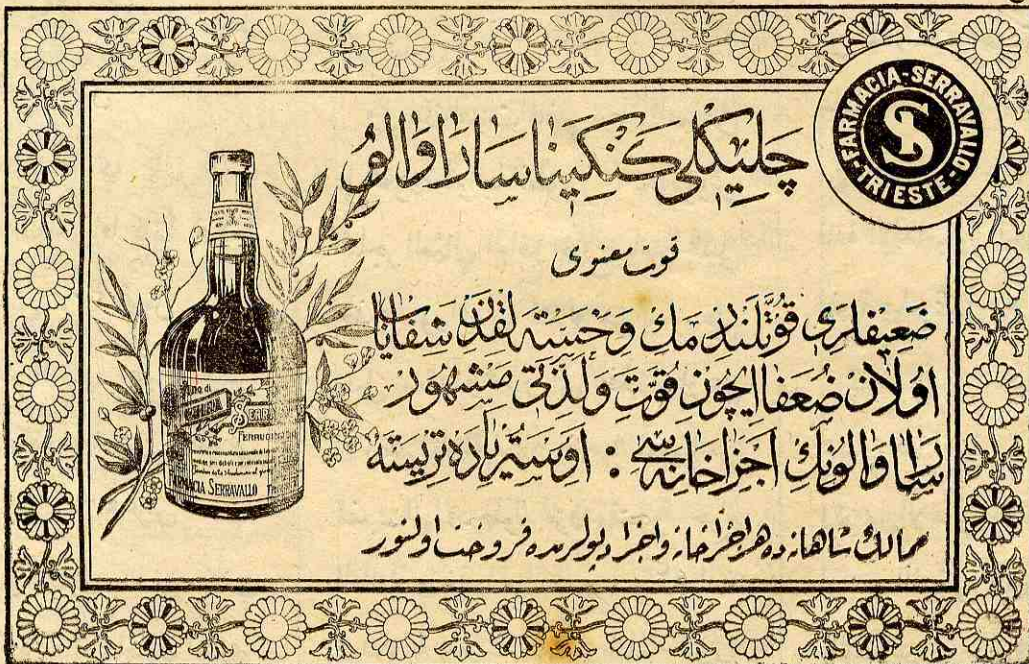 FARMACIA-SERRAVALLO-TRIESTE
S
چلیكلی كنكینا ساراوالو
قوت معنوی
ضعیفلری قوّتلندرمك و خسته لقدن شفایاب
اولان ضعفا ایچون قوّت و لذتی مشهور
ساراوالونك اجزاخانه سی : اوستریاده تریسته
ممالك شاهانه ده هر اجزاخانه و اجزا دپولرنده فروخت اولنور
Vino di
CHINA
SERRAVALLO
FERRUGINOSO
FARMACIA SERRAVALLO